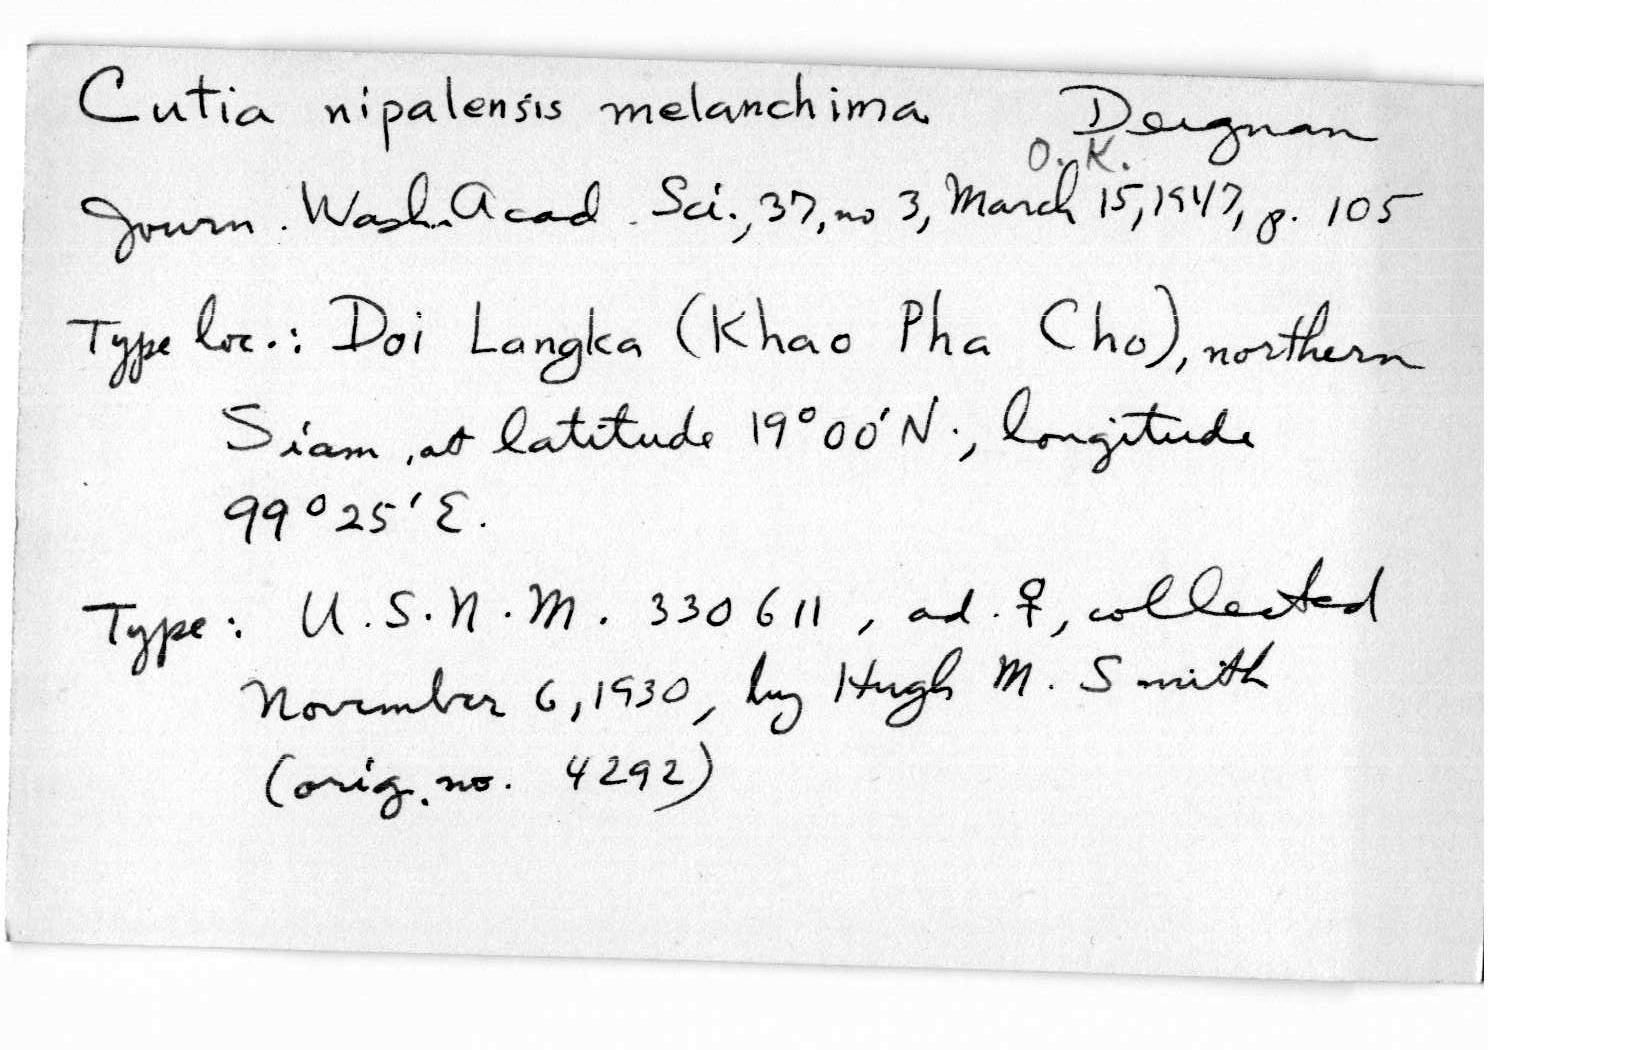 Cutia nipalensis melanchima Deignan
O.K.
Journ. Wash. Acad. Sci., 37, no 3, March 15, 1947, p. 105
Type loc.: Doi Langka (Khao Pha Cho), northern
Siam, at latitude 19°00'N., longitude
99°25'E.
Type: U.S.N.M. 330611, ad. ♀, collected
November 6, 1930, by Hugh M. Smith
(orig. no. 4292)